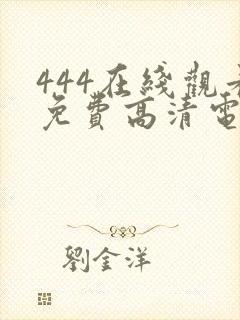 444在綫觀看
免費高清電
劉金洋